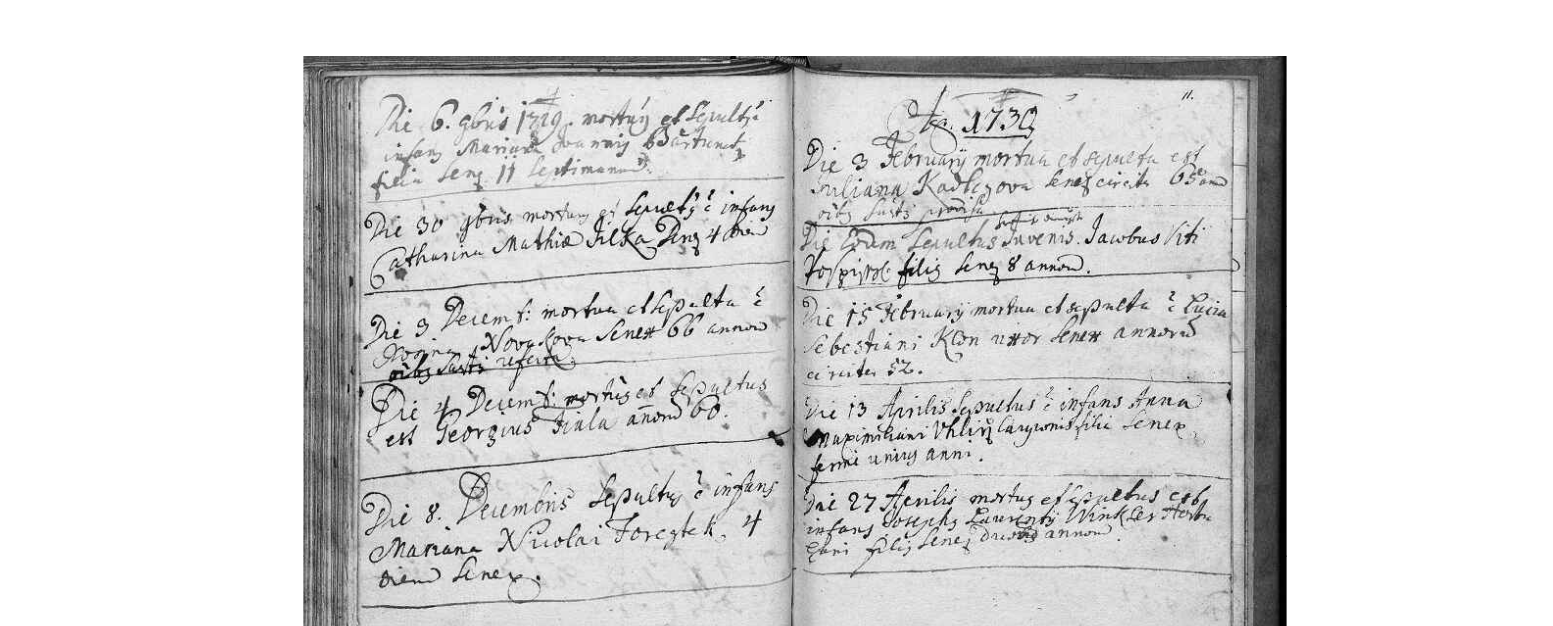 Die 6. 9bris 1729. mortuus et sepultus
infans Mariana Joannis
filia senex 11 septimanarum.
Die 30 9bris mortuus et sepultus ē infans
Catharina Mathiæ Jilka senex 4 dierum
Die 3 Decemb: mortua et sepulta ē
Novakova senex 66 annorum
oibus
Die 4 Decemb: mortuus et sepultus
est Georgius Fiala annorum 60.
Die 8. Decembris sepultus ē infans
Mariana Nicolai Forcztek. 4
dierum senex.
11.
A. 1730
Die 3 February mortua et sepulta est
Juliana Kadlczova senex circiter 65
oibus provisa
Die Eodem sepultus Juvenis Jacobus Viti
filius senex 8 annorum.
Die 15 February mortua et sepulta ē Lucia
Sebestiani Klon uxor senex annorum
circiter 52.
Die 13 Aprilis sepultus ē infans Anna
Maximiliani filia senex
ferme unius anni.
Die 27 Aprilis mortuus et sepultus est
infans Josephus Laurenty Winkler
filius senex annorum